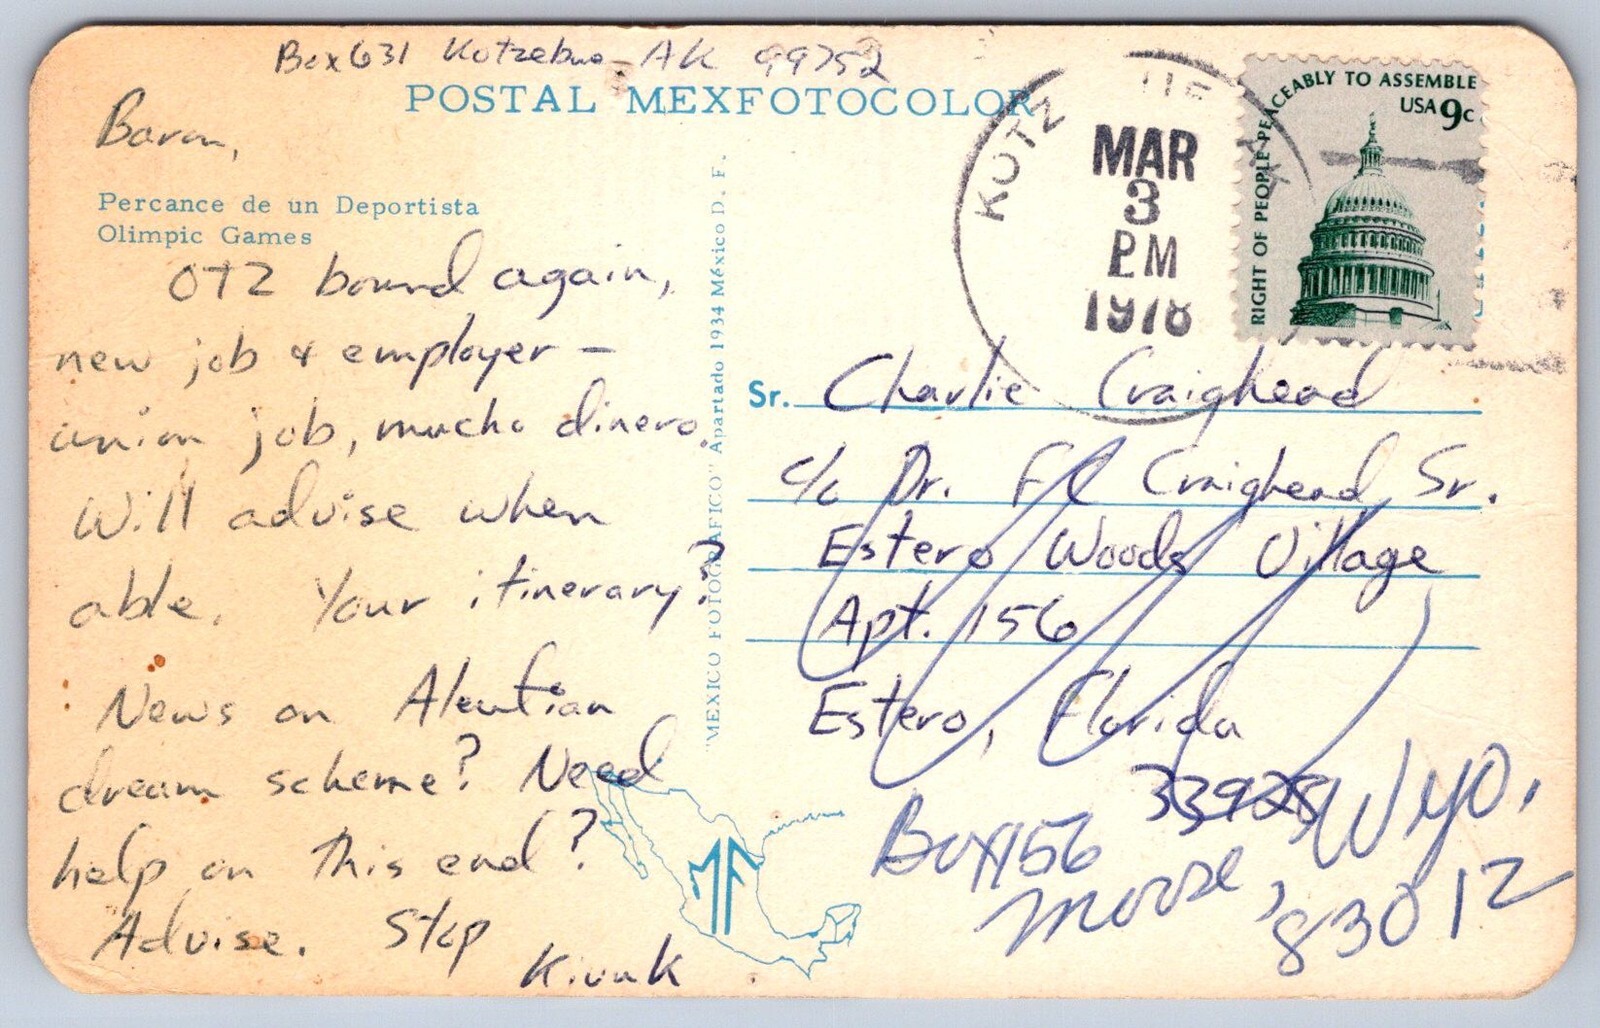 Box 631 Kotzebue AK 99752
POSTAL MEXFOTOCOLOR
Baron,
Percance de un Deportista
Olimpic Games
OTZ bound again,
new job & employer –
union job, mucho dinero.
Will advise when
able. Your itinerary?
News on Aleutian
dream scheme? Need
help on this end?
Advise. Stop
Kivuk
"MEXICO FOTOGRAFICO" Apartado 1934 México D. F.
MF
KOTZ UE AK
MAR
3
PM
1978
RIGHT OF PEOPLE PEACEABLY TO ASSEMBLE
USA 9c
Sr. Charlie Craighead
c/o Dr. FC Craighead Sr.
Estero Woods Village
Apt. 156
Estero, Florida
33928
Box 156 Wyo.
Moose, 83012